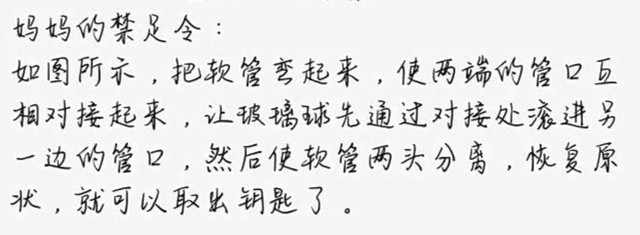 妈妈的禁足令：
如图所示，把软管弯起来，使两端的管口互
相对接起来，让玻璃球先通过对接处滚进另
一边的管口，然后使软管两头分离，恢复原
状，就可以取出钥匙了。